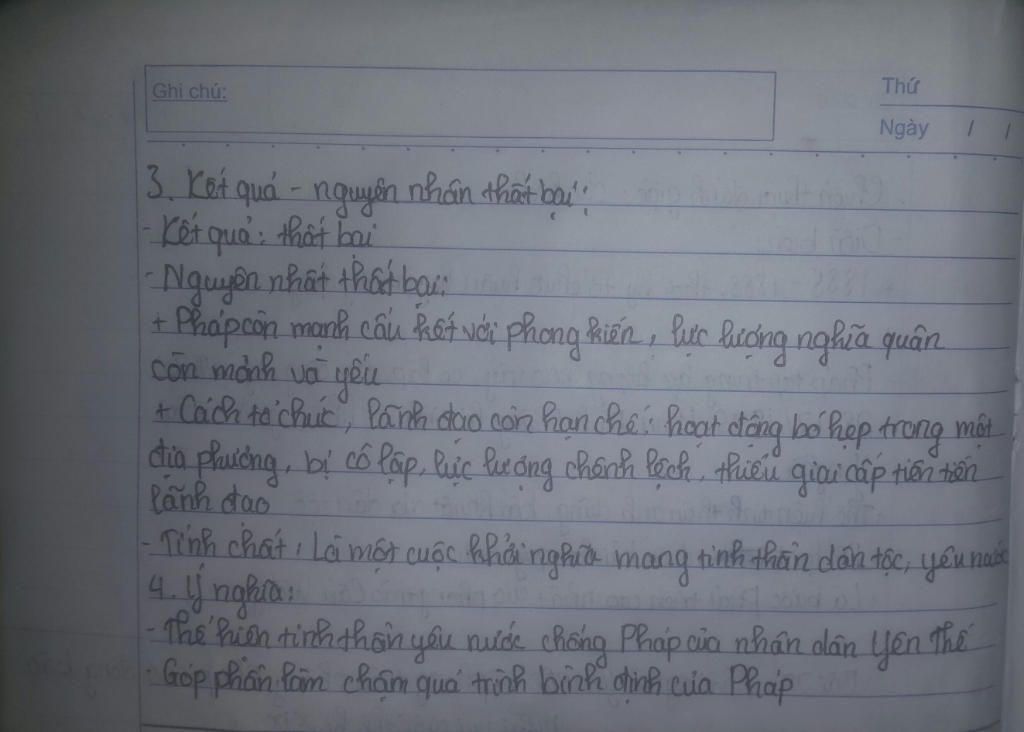 Ghi chú:
Thứ
Ngày / /
3. Kết quả - nguyên nhân thất bại:
- Kết quả: thất bại
- Nguyên nhất thất bại:
+ Pháp còn mạnh cấu kết với phong kiến, lực lượng nghĩa quân
còn mảnh và yếu
+ Cách tổ chức, lãnh đạo còn hạn chế: hoạt động bó hẹp trong một
địa phương, bị cô lập, lực lượng chênh lệch, thiếu giai cấp tiên tiến
lãnh đạo
- Tính chất: Là một cuộc khởi nghĩa mang tinh thần dân tộc, yêu nước
4. Ý nghĩa:
- Thể hiện tinh thần yêu nước chống Pháp của nhân dân Yên Thế
- Góp phần làm chậm quá trình bình định của Pháp